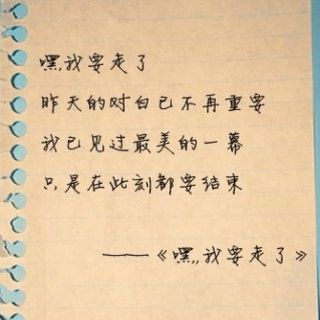 嘿,我要走了
昨天的对白已不再重要
我已见过最美的一幕
只是在此刻都要结束
——《嘿,,我要走了》